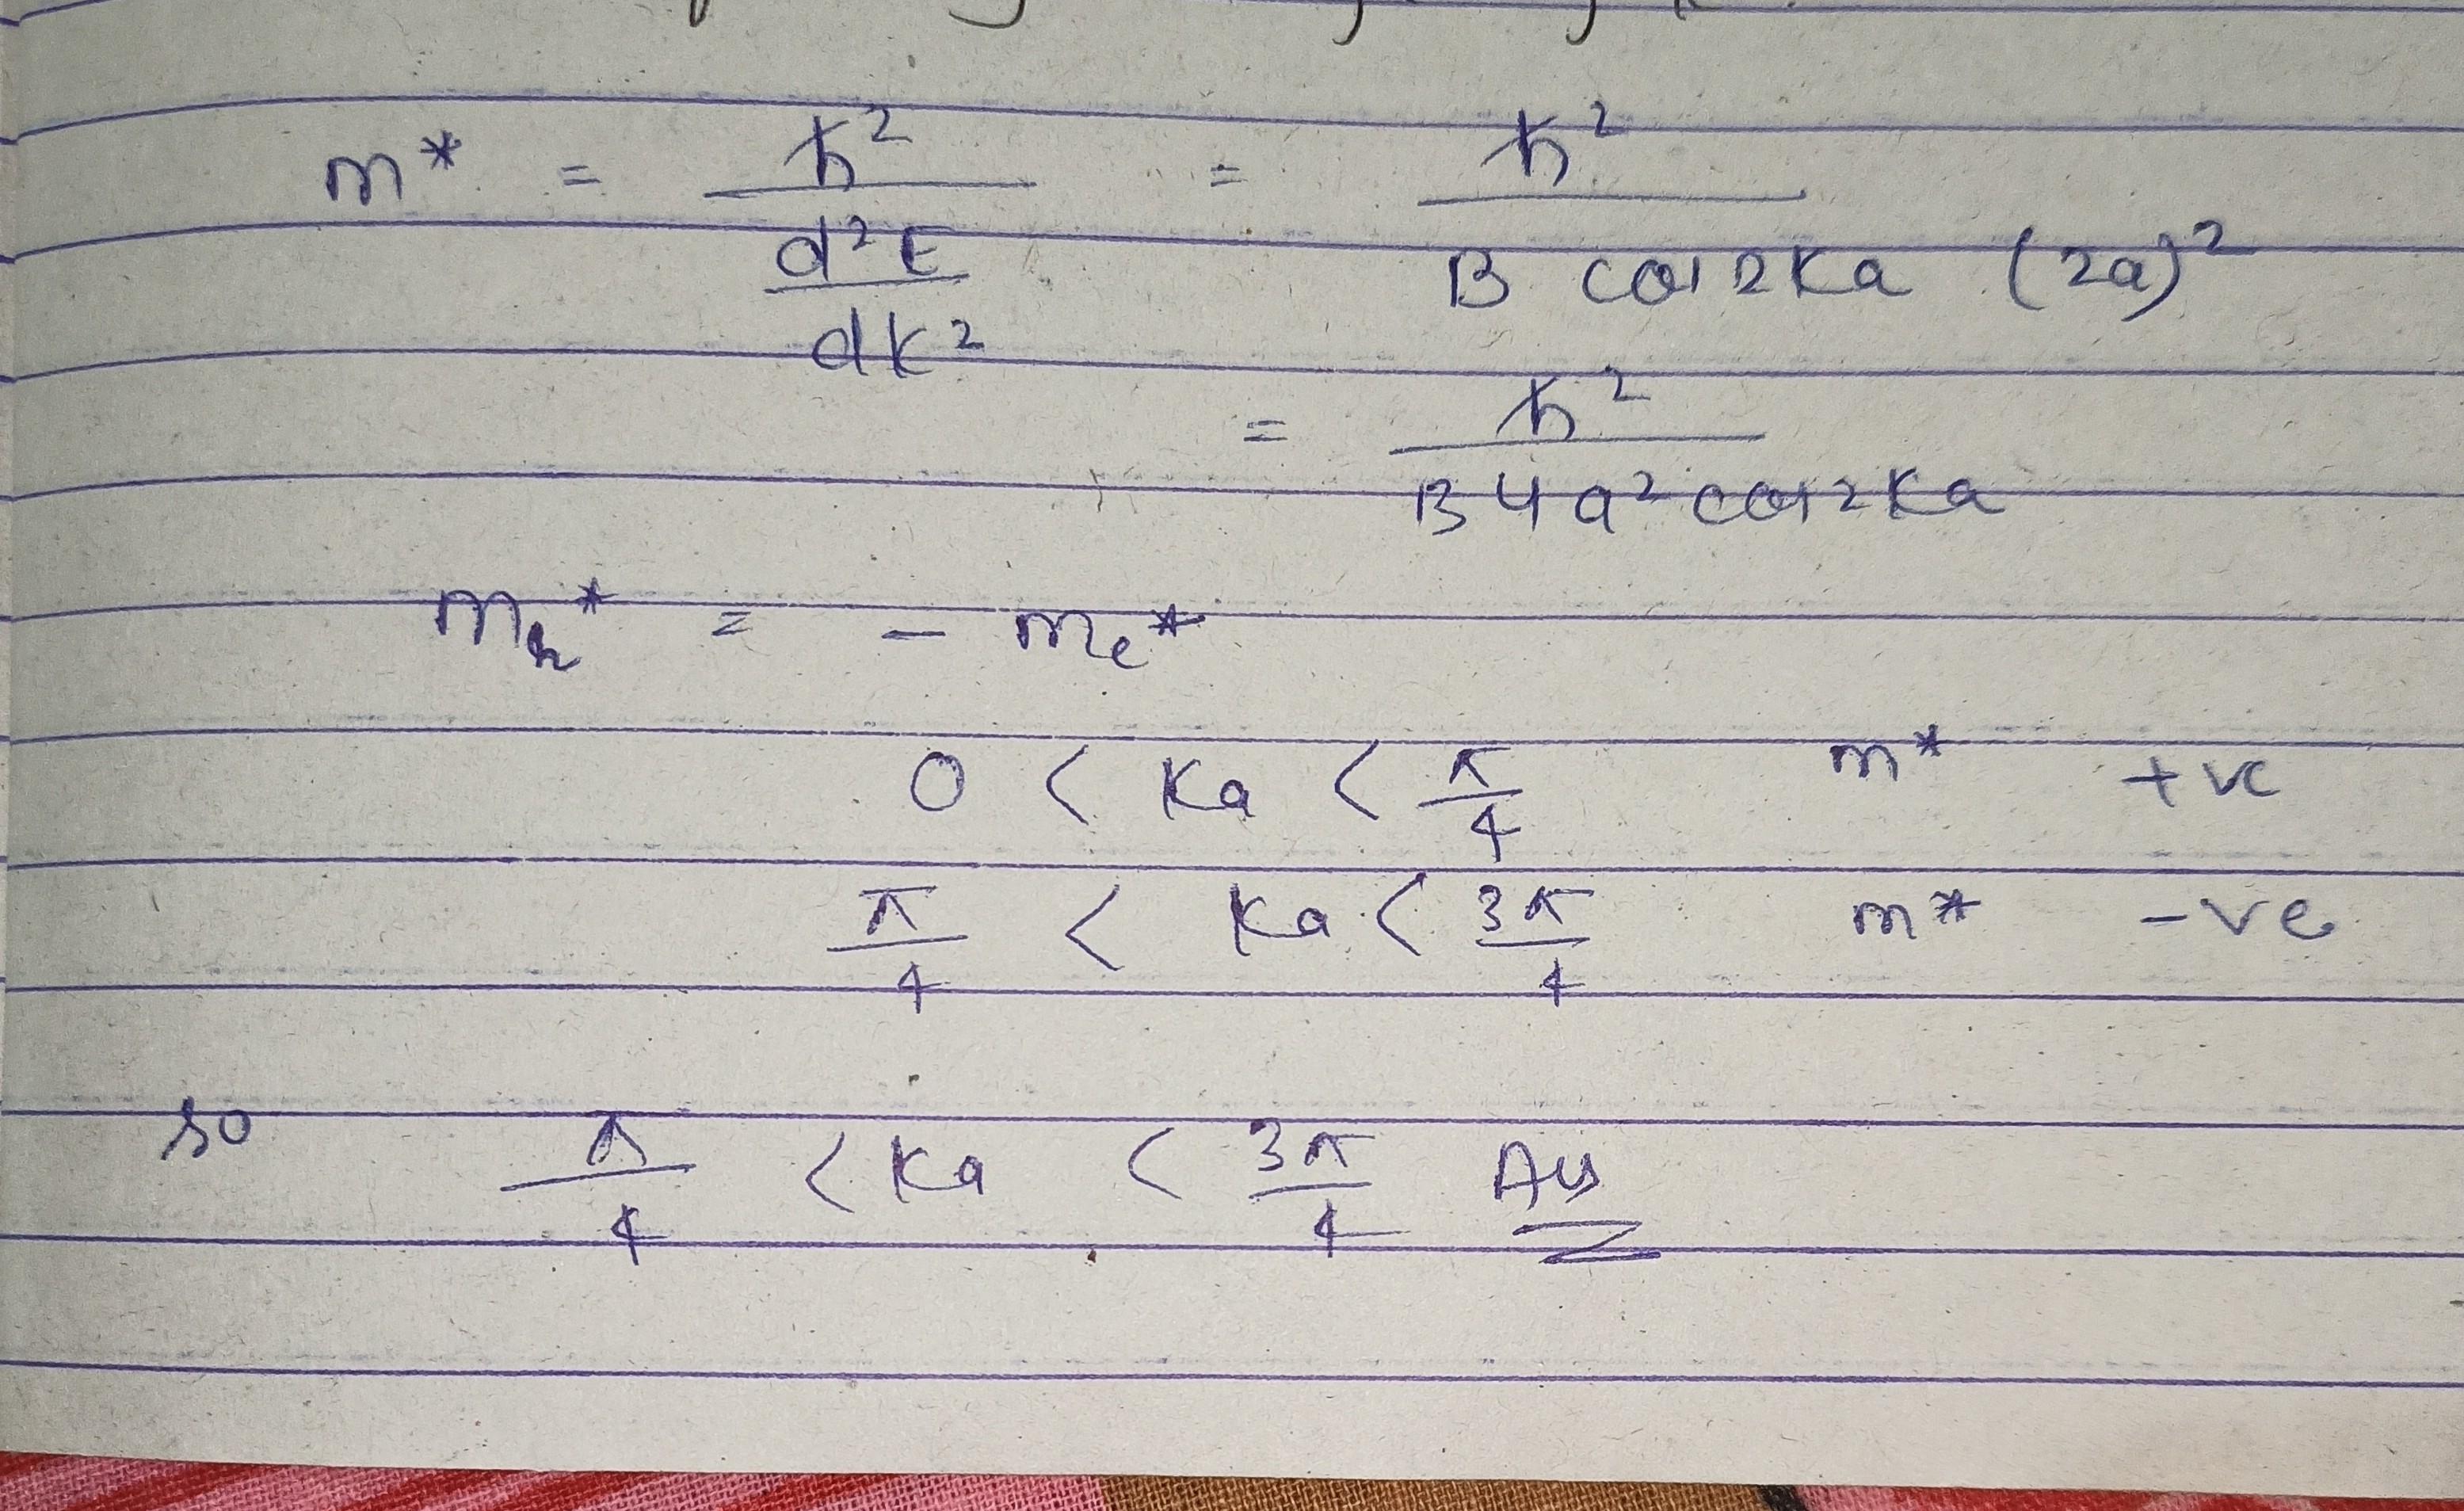 m* = ħ² / (d²E / dK²) = ħ² / (B cos 2Ka (2a)²)
= ħ² / (B 4 a² cos 2Ka)
m_h* = - m_e*
0 < Ka < π/4 m* +ve
π/4 < Ka < 3π/4 m* -ve
so π/4 < Ka < 3π/4 Ans